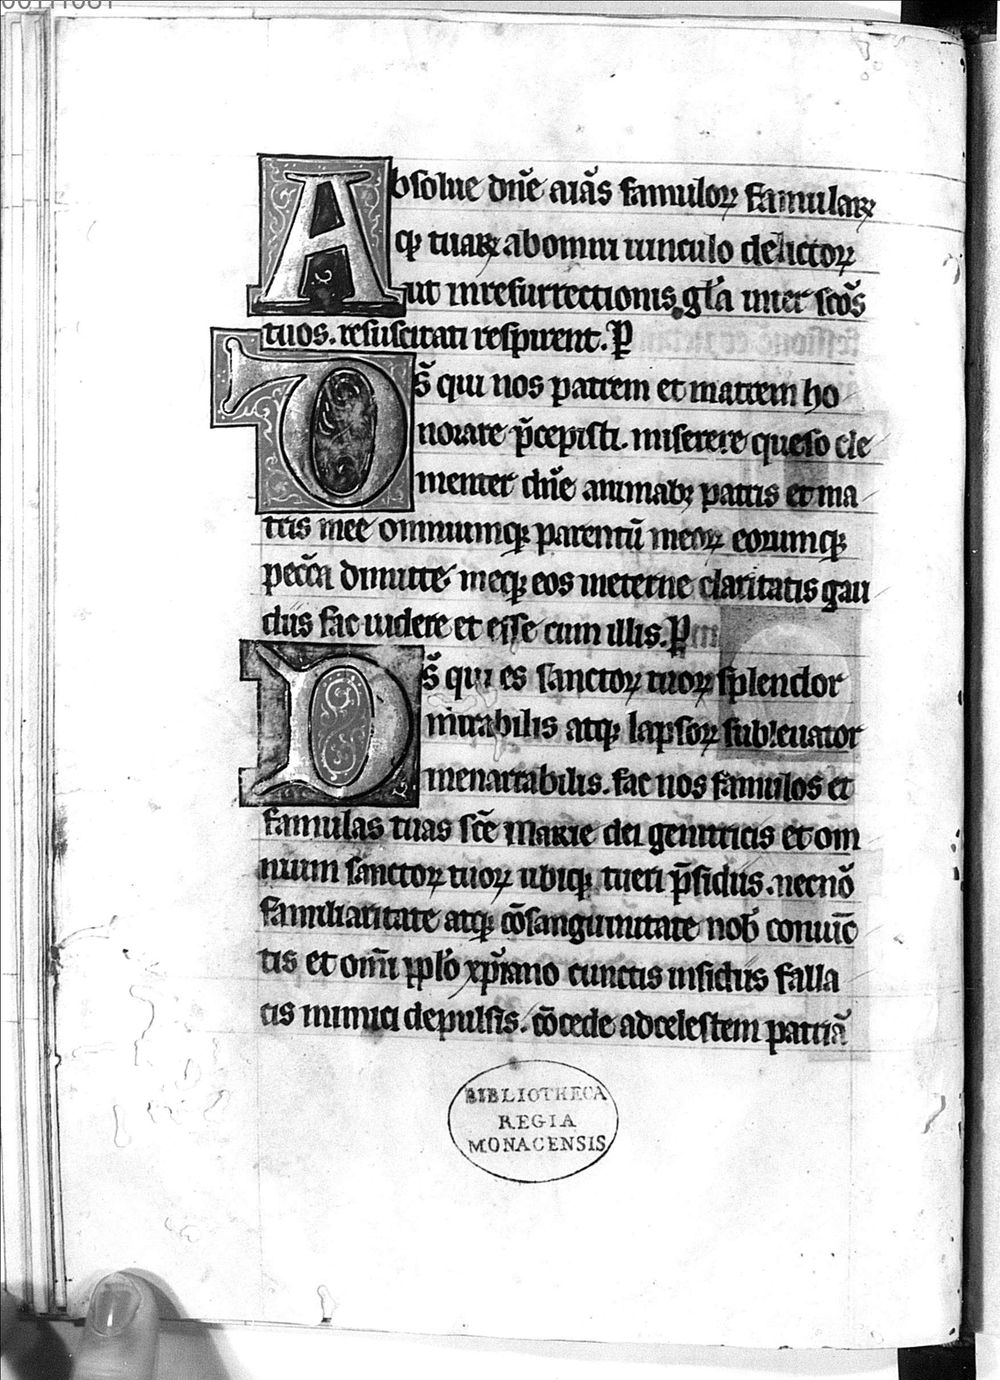 00111081
Absolue dn̄e aīas famuloꝝ famulaꝝ
qꝫ tuaꝝ ab omni uinculo delictoꝝ
ut in resurrectionis gl̄a inter sc̄os
tuos. resuscitati respirent. P
Ds̄ qui nos patrem et matrem ho
norare p̄cepisti. miserere queso cle
menter dn̄e animabꝫ patris et ma
tris mee omniumqꝫ parentū meoꝝ eorumqꝫ
pecc̄a dimitte. meqꝫ eos in eterne claritatis gau
diis fac uidere et esse cum illis. P
Ds̄ qui es sanctoꝝ tuoꝝ splendor
mirabilis atqꝫ lapsoꝝ subleuator
inenarrabilis. fac nos famulos et
famulas tuas sc̄e Marie dei genitricis et om
nium sanctoꝝ tuoꝝ ubiqꝫ tueri p̄sidiis. necnō
familiaritate atqꝫ cōsanguinitate nob̄ coniūc
tis et om̄i pp̄lo xp̄iano cunctis insidiis falla
cis inimici depulsis. cōcede ad celestem patriā
BIBLIOTHECA
REGIA
MONACENSIS